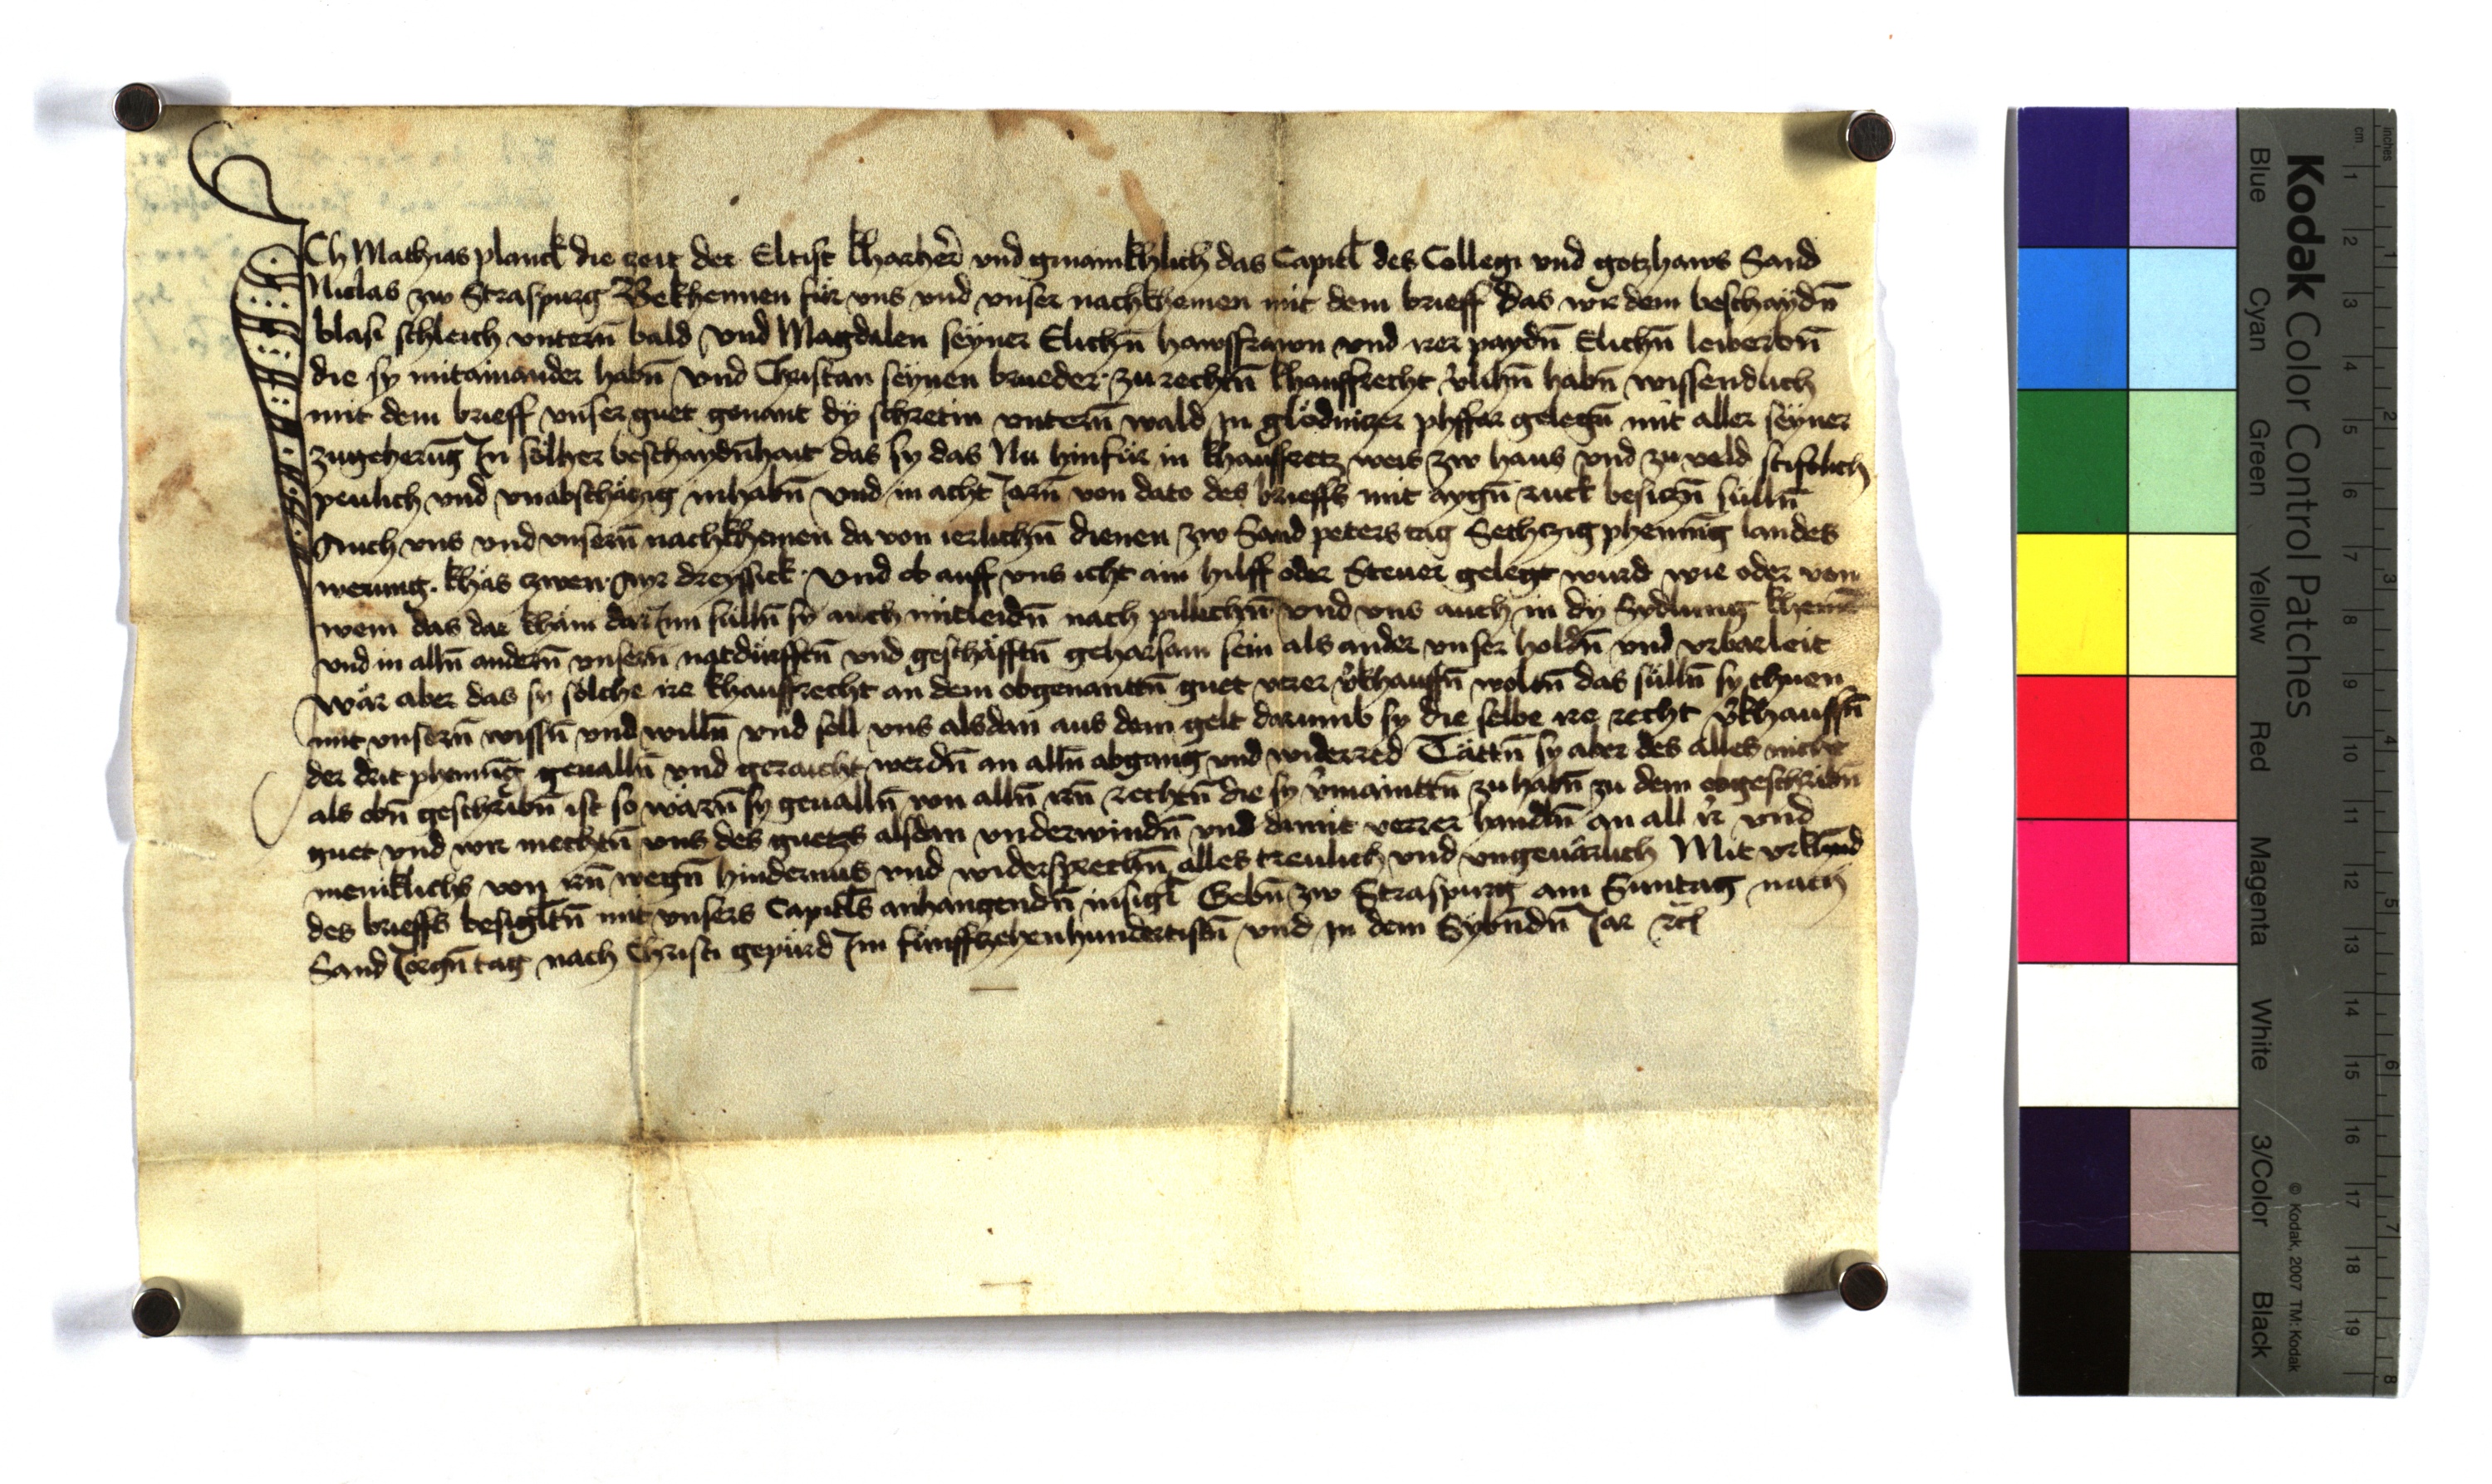 ICh Mathias planck die zeit der Eltist kharher̄ vnd gmainkhlich das Capitl des Collegi vnd gotzhaws Sand
Niclas zw Straspurg Bekhennen für vns vnd vnser nachkhemen mit dem brieff Das wir dem beschaydn̄
blasi schleich vnterm̄ bald vnd Magdalen seyner Elichn̄ hawsfrawn vnd irer paydn̄ Elichn̄ leiberbn̄
die sy mitainander habn̄ vnd Christan seynen brueder zu rechtn̄ khauffrecht v̄lihn̄ habn̄ wissendlich
mit dem brieff vnser guet genant dy schretin vnterm̄ wald In glödnitzer phffar gelegn̄ mit aller seyner
zugeherūg In sölher beschaydn̄hait das sy das Nu hinfür in khauffretz weis zw haus vnd zu veld stiftlich
peulich vnd vnabschätzig inhabn̄ vnd in acht Jarn̄ von dato des brieffs mit aygn̄ ruck besitzn̄ sülln̄
Auch vns vnd vnsern̄ nachkhemen da von ierlichn̄ dienen zw Sand peters tag Sechtzig phennīg landes
werung. khäs zwen. Ayr dreyssick. Vnd ob auff vns icht ain hilff oder Steuer gelegt wurd wie oder von
wem das dar khäm dar Inn sülln̄ sy auch mitleidn̄ nach pillichn̄ vnd vns auch in dy Sydlung khemē
vnd in alln̄ andern̄ vnsern̄ natdürfftn̄ vnd geschäfftn̄ geharsam sein als ander vnser holdn̄ vnd vrbarleit
Wär aber das sy sölche ire khauffrecht an dem obgenanttn̄ guet verer v̄khauffn̄ woltn̄ das sülln̄ sy thuen
mit vnsern̄ wissn̄ vnd willn̄ vnd soll vns alsdan aus dem gelt darumb sy die selbe ire recht v̄khauffn̄
der drit phennīg geualln̄ vnd geraicht werdn̄ an alln̄ abgang vnd widerred Tättn̄ sy aber des alles nicht
als obn̄ geschribn̄ ist so wärn̄ sy geualln̄ von alln̄ irn̄ rechtn̄ die sy v̄mainttn̄ zu habn̄ zu dem obgeschribn̄
guet vnd wir mechtn̄ vns des guetzs alsdan vnderwindn̄ vnd damit verrer handln̄ an all ir̄ vnd
meniklichs von irn̄ wegn̄ hindernus vnd widersprechn̄ alles treulich vnd vngeuärlich Mit vrkhund
des brieffs besigltn̄ mit vnsers Capitls anhangendn̄ insigl Gebn̄ zw Straspurg am Suntag nach
Sand Jorgn̄ tag nach Christi gepurd Im funffzehenhundertistn̄ vnd In dem Sybn̄dn̄ Jar rc̄
Kodak Color Control Patches
Blue Cyan Green Yellow Red Magenta White 3/Color Black
© Kodak, 2007 TM: Kodak
inches 1 2 3 4 5 6 7 8
cm 1 2 3 4 5 6 7 8 9 10 11 12 13 14 15 16 17 18 19